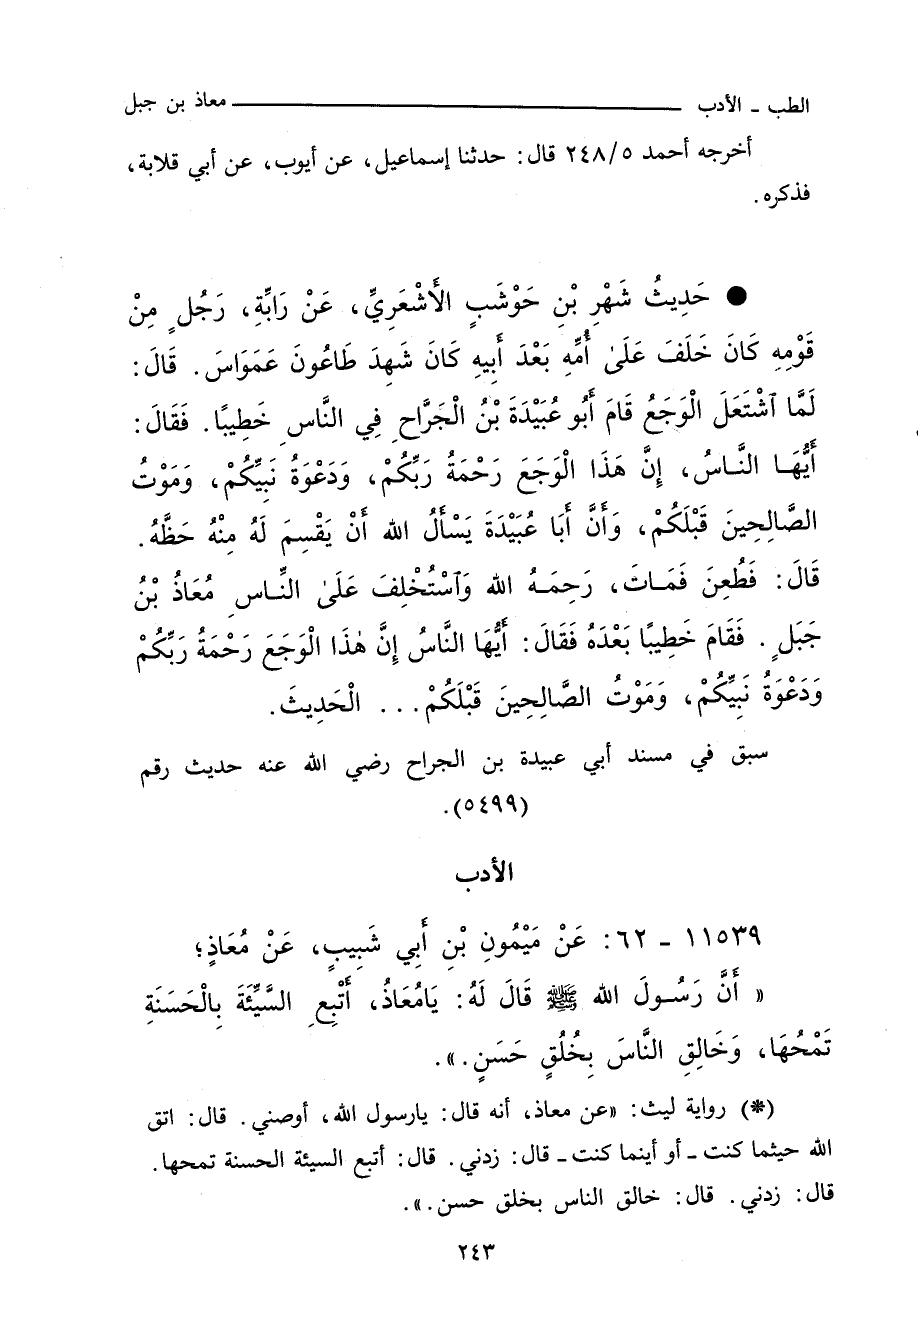 الطب ـ الأدب ــــــــ معاذ بن جبل
أخرجه أحمد ٢٤٨/٥ قال: حدثنا إسماعيل، عن أيوب، عن أبي قلابة،
فذكره.
● حَدِيثُ شَهْرِ بْنِ حَوْشَبٍ الأَشْعَرِيِّ، عَنْ رَابِّةِ، رَجُلٍ مِنْ
قَوْمِهِ كَانَ خَلَفَ عَلَىٰ أُمِّهِ بَعْدَ أَبِيهِ كَانَ شَهِدَ طَاعُونَ عَمَوَاسَ. قَالَ:
لَمَّا ٱشْتَعَلَ الْوَجَعُ قَامَ أَبُو عُبَيْدَةَ بْنُ الْجَرَّاحِ فِي النَّاسِ خَطِيبًا. فَقَالَ:
أَيُّهَا النَّاسُ، إِنَّ هَذَا الْوَجَعَ رَحْمَةُ رَبِّكُمْ، وَدَعْوَةُ نَبِيِّكُمْ، وَمَوْتُ
الصَّالِحِينَ قَبْلَكُمْ، وَأَنَّ أَبَا عُبَيْدَةَ يَسْأَلُ الله أَنْ يَقْسِمَ لَهُ مِنْهُ حَظَّهُ.
قَالَ: فَطُعِنَ فَمَاتَ، رَحِمَهُ الله وَٱسْتُخْلِفَ عَلَىٰ النَّاسِ مُعَاذُ بْنُ
جَبَلٍ. فَقَامَ خَطِيبًا بَعْدَهُ فَقَالَ: أَيُّهَا النَّاسُ إِنَّ هٰذَا الْوَجَعَ رَحْمَةُ رَبِّكُمْ
وَدَعْوَةُ نَبِيِّكُمْ، وَمَوْتُ الصَّالِحِينَ قَبْلَكُمْ... الْحَدِيثَ.
سبق في مسند أبي عبيدة بن الجراح رضي الله عنه حديث رقم
(٥٤٩٩).
الأدب
١١٥٣٩ ـ ٦٢: عَنْ مَيْمُونِ بْنِ أَبِي شَبِيبٍ، عَنْ مُعَاذٍ؛
« أَنَّ رَسُولَ الله ﷺ قَالَ لَهُ: يَامُعَاذُ، أَتْبِعِ السَّيِّئَةَ بِالْحَسَنَةِ
تَمْحُهَا، وَخَالِقِ النَّاسَ بِخُلُقٍ حَسَنٍ.».
(*) رواية ليث: «عن معاذ، أنه قال: يارسول الله، أوصني. قال: اتق
الله حيثما كنت ـ أو أينما كنت ـ قال: زدني. قال: أتبع السيئة الحسنة تمحها.
قال: زدني. قال: خالق الناس بخلق حسن.».
٢٤٣